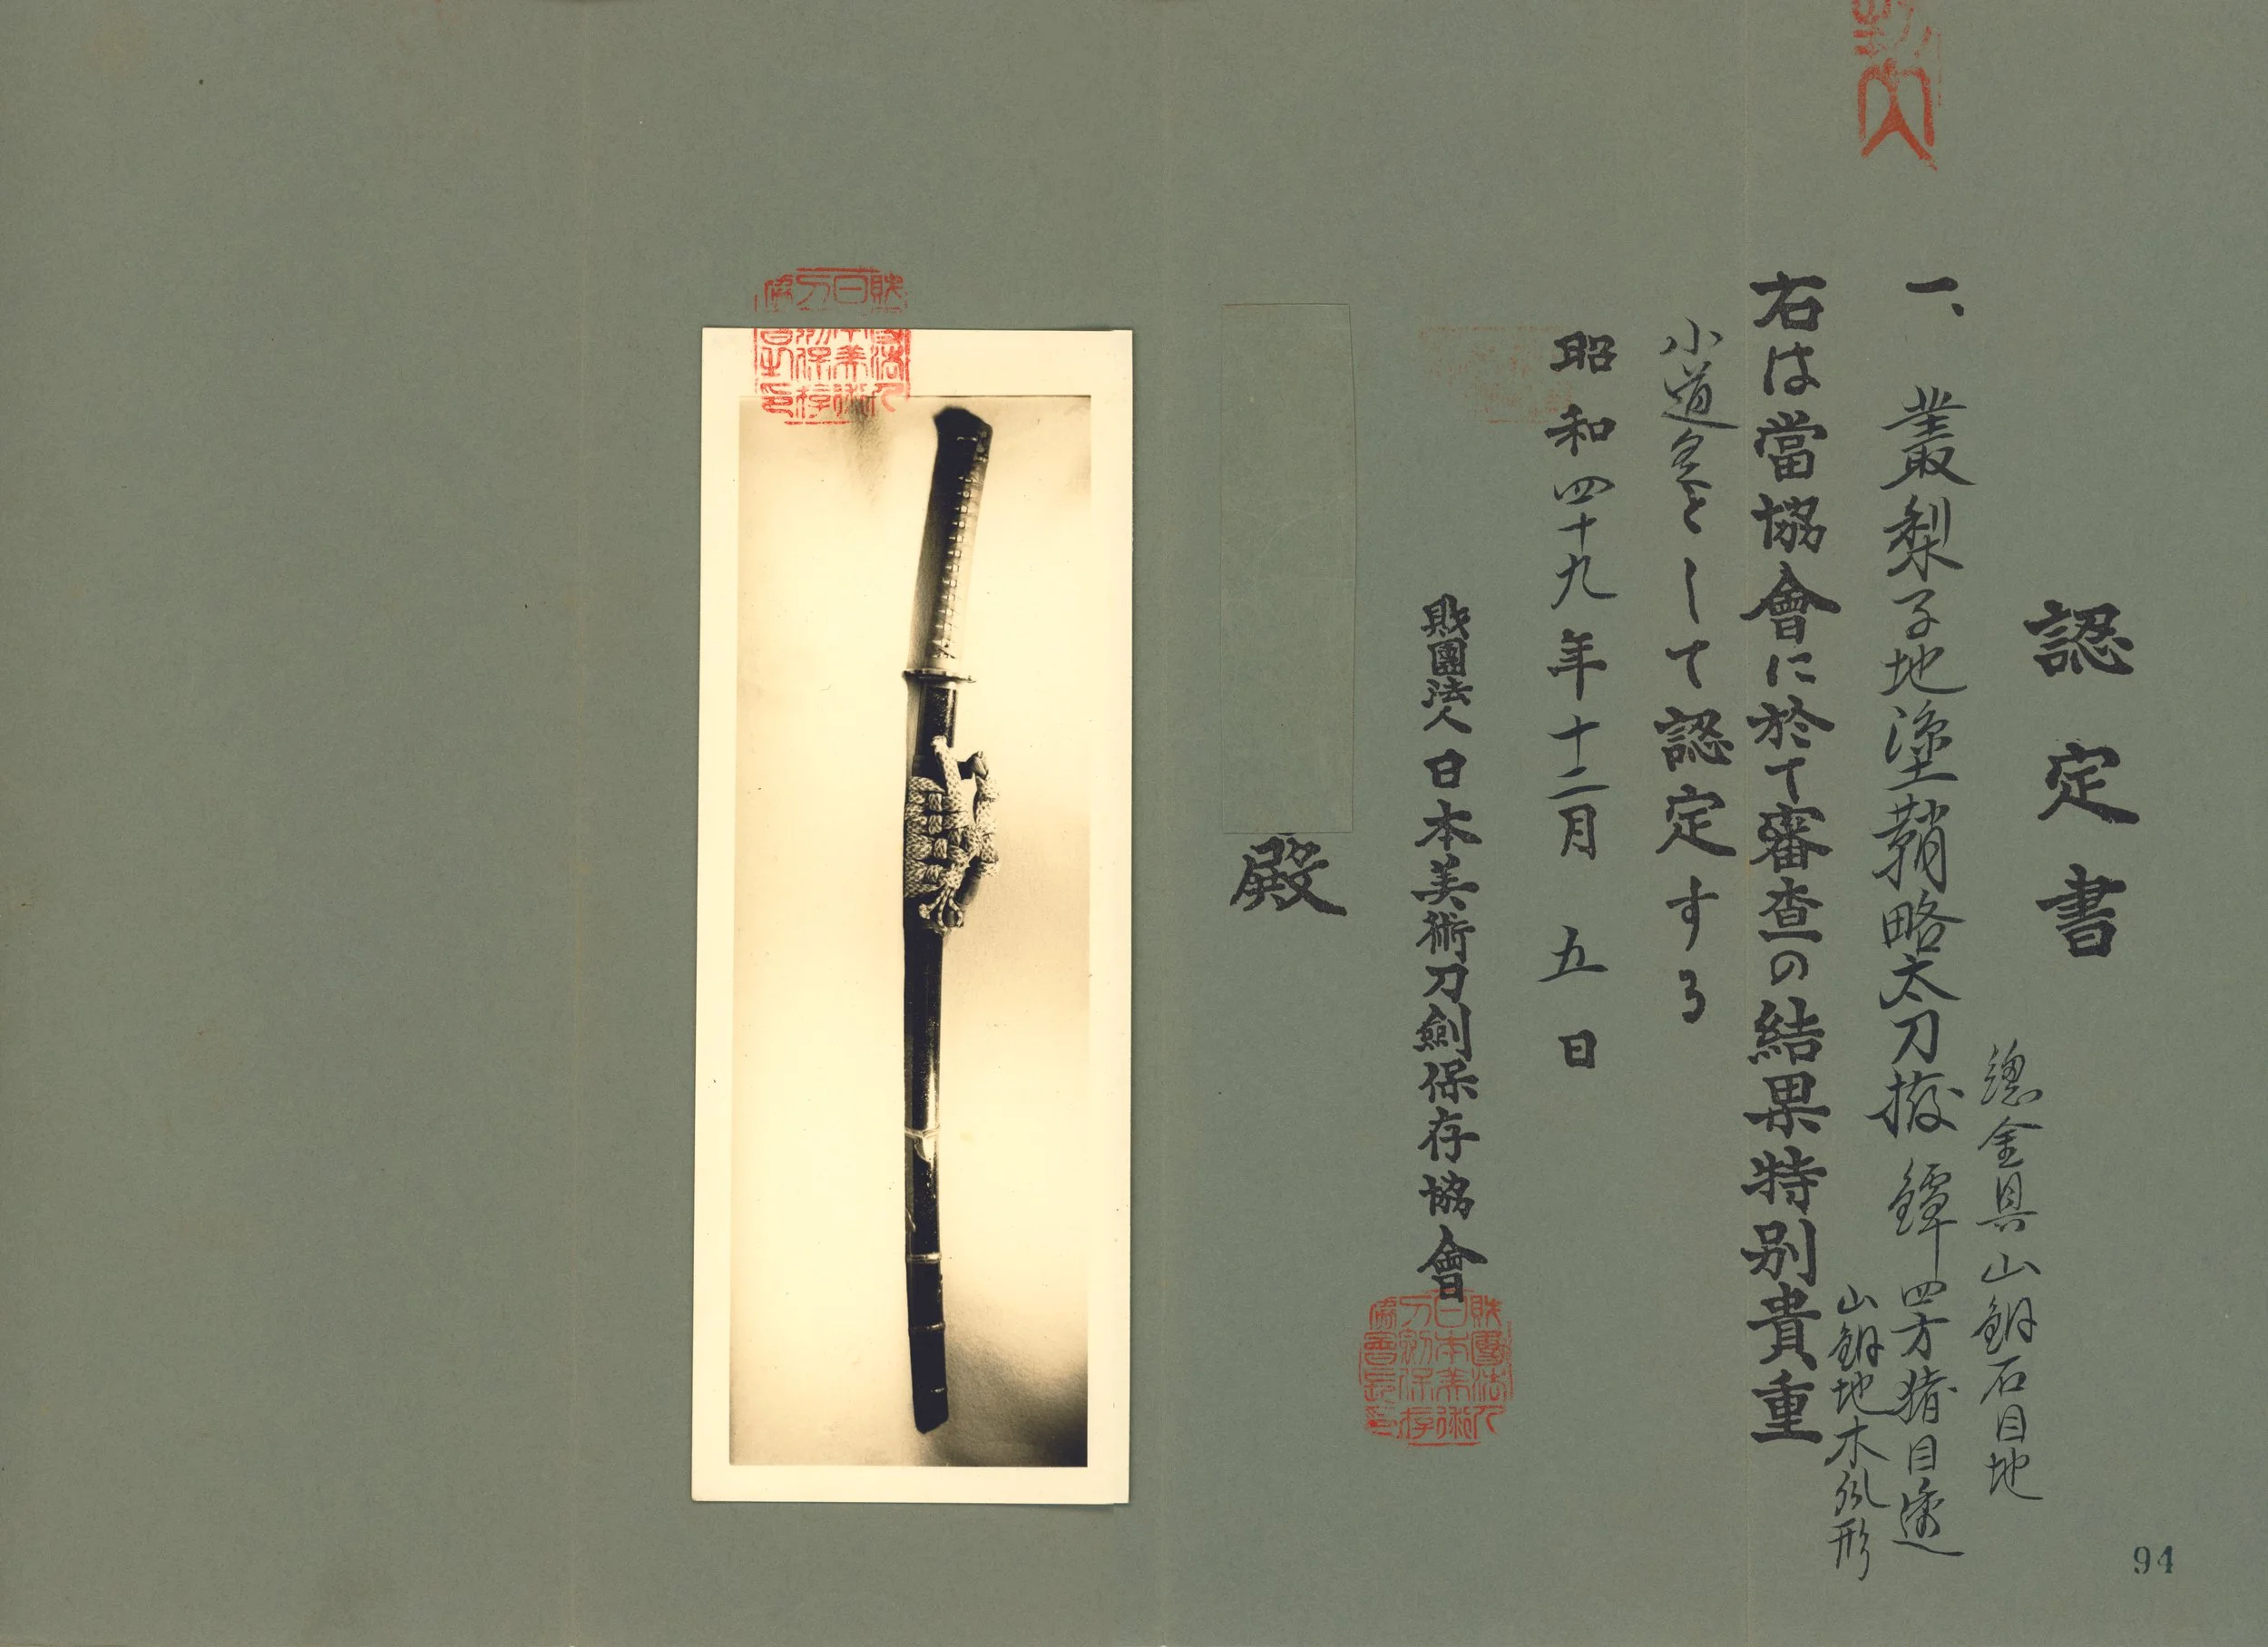 認定書
一、叢梨子地塗鞘略太刀拵
總金具山銅石目地
鐔四方猪目透
山銅地木瓜形
右は當協會に於て審査の結果特別貴重
小道具として認定する
昭和四十九年十二月五日
財團法人日本美術刀劍保存協會
殿
財團法人日本美術刀劍保存協會長印
94